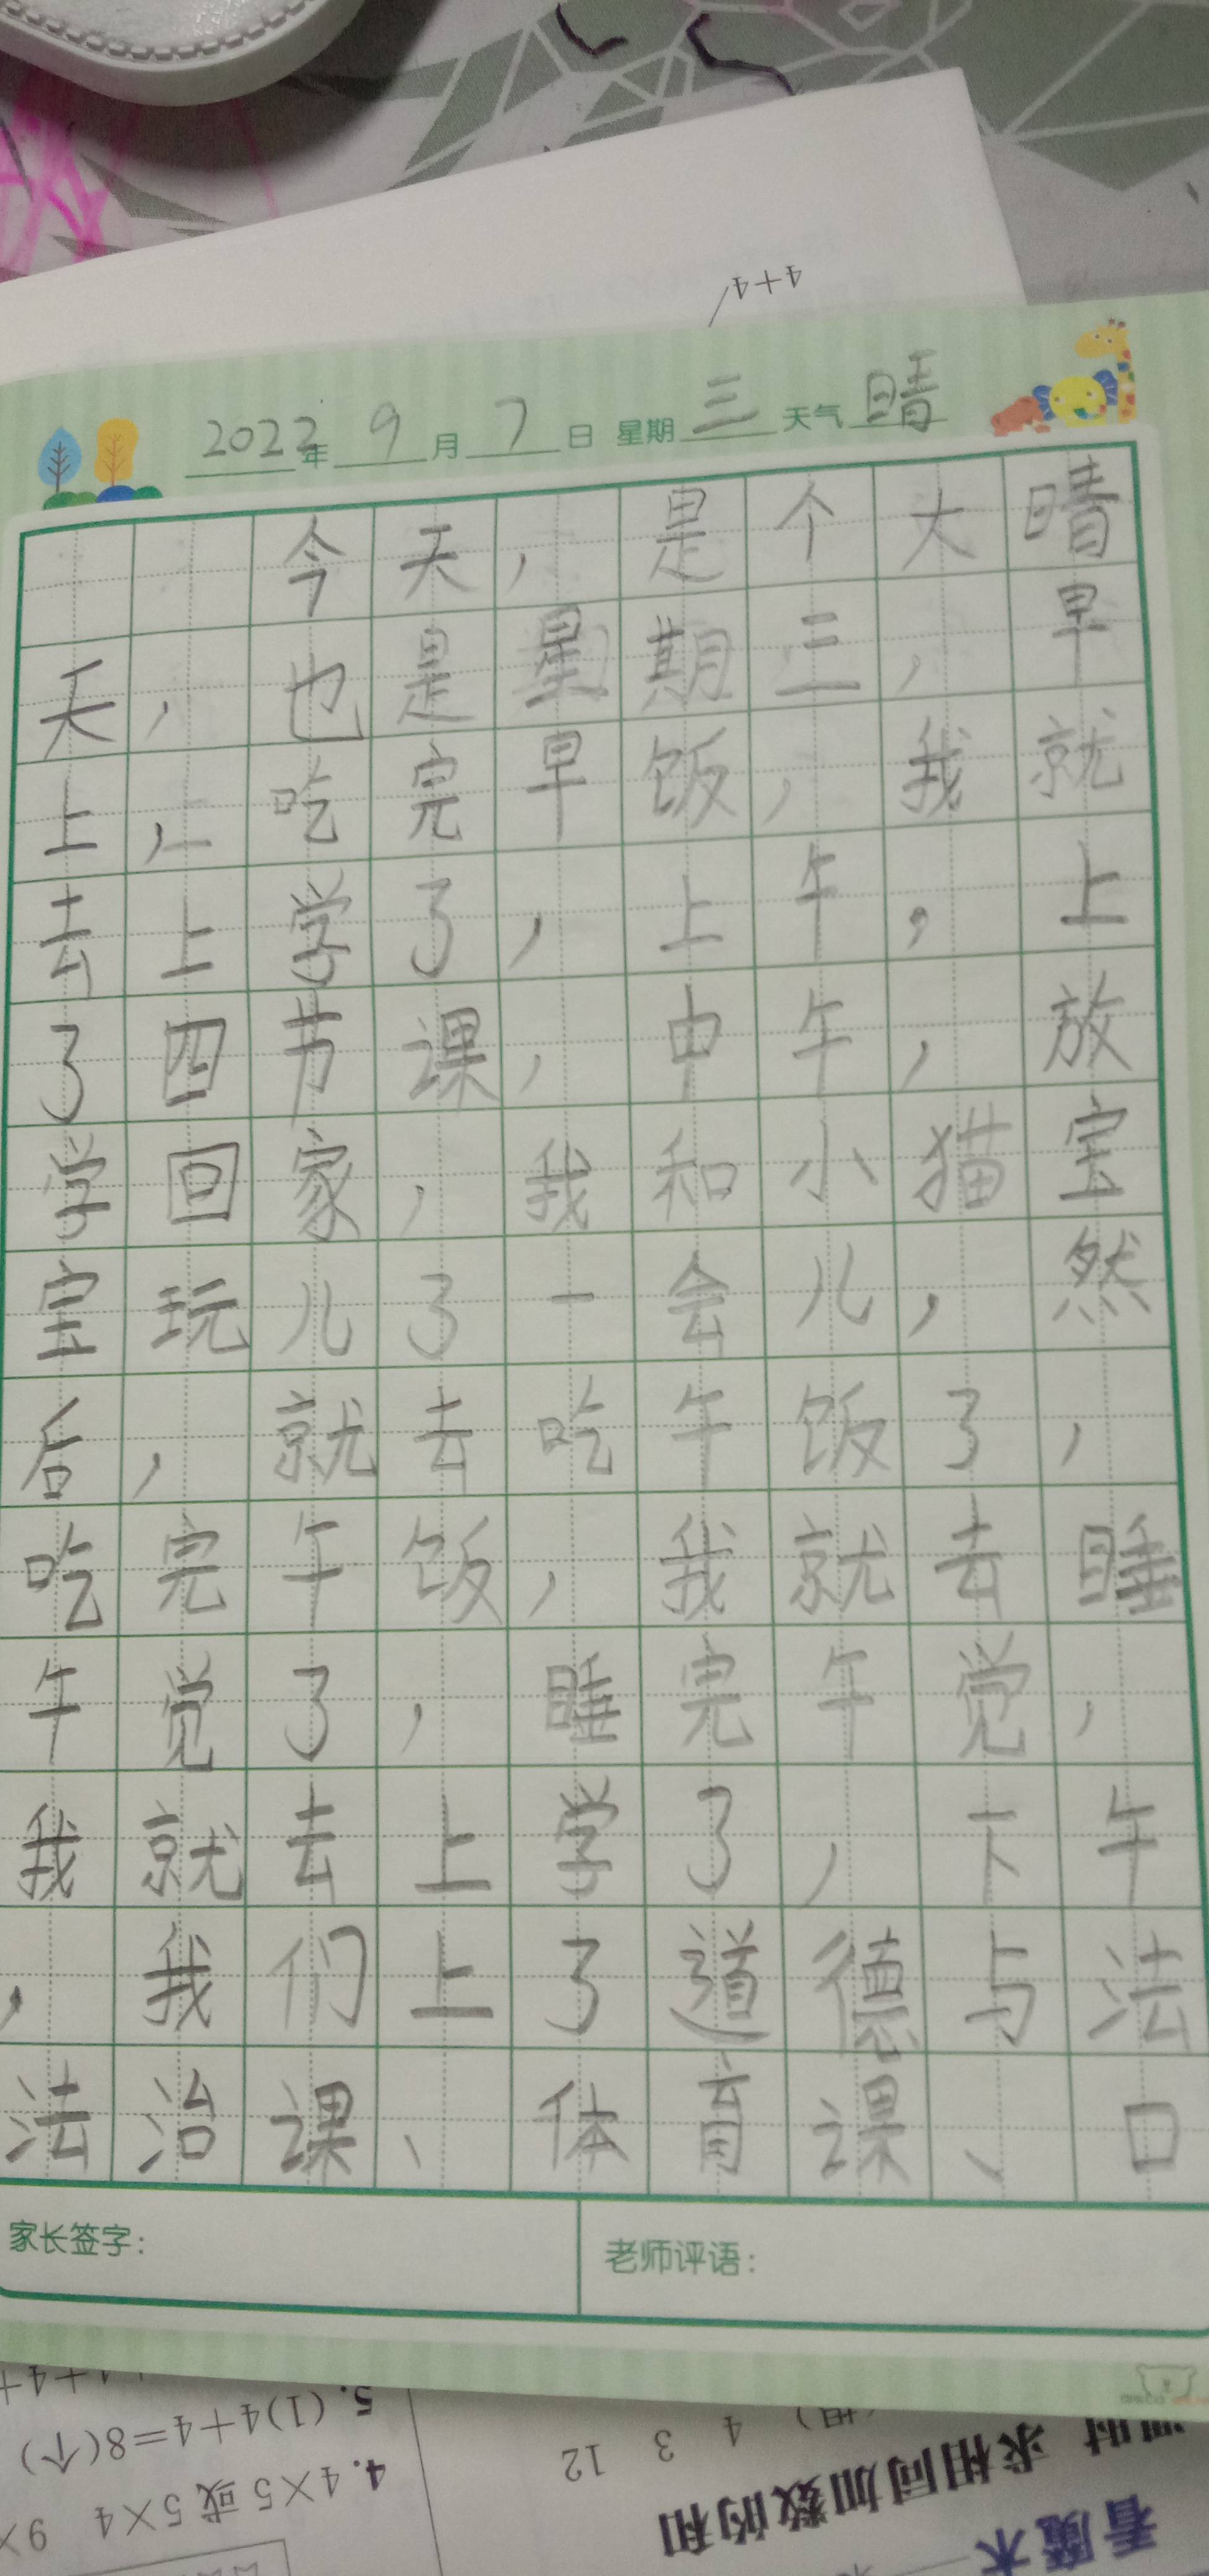 4+4
2022年9月7日 星期三 天气晴
今天，是个大晴
天，也是星期三，早
上，吃完早饭，我就
去上学了，上午，上
了四节课，中午，放
学回家，我和小猫宝
宝玩儿了一会儿，然
后，就去吃午饭了，
吃完午饭，我就去睡
午觉了，睡完午觉，
我就去上学了，下午
，我们上了道德与法
法治课、体育课、口
家长签字： 老师评语：
5.(1)4+4=8(个)
4.4×5或5×4 9×
4 3 12
求相同加数的和
看魔术